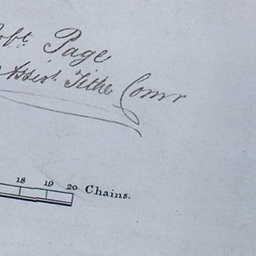 Robt. Page
Assist. Tithe Comr
18 19 20 Chains.